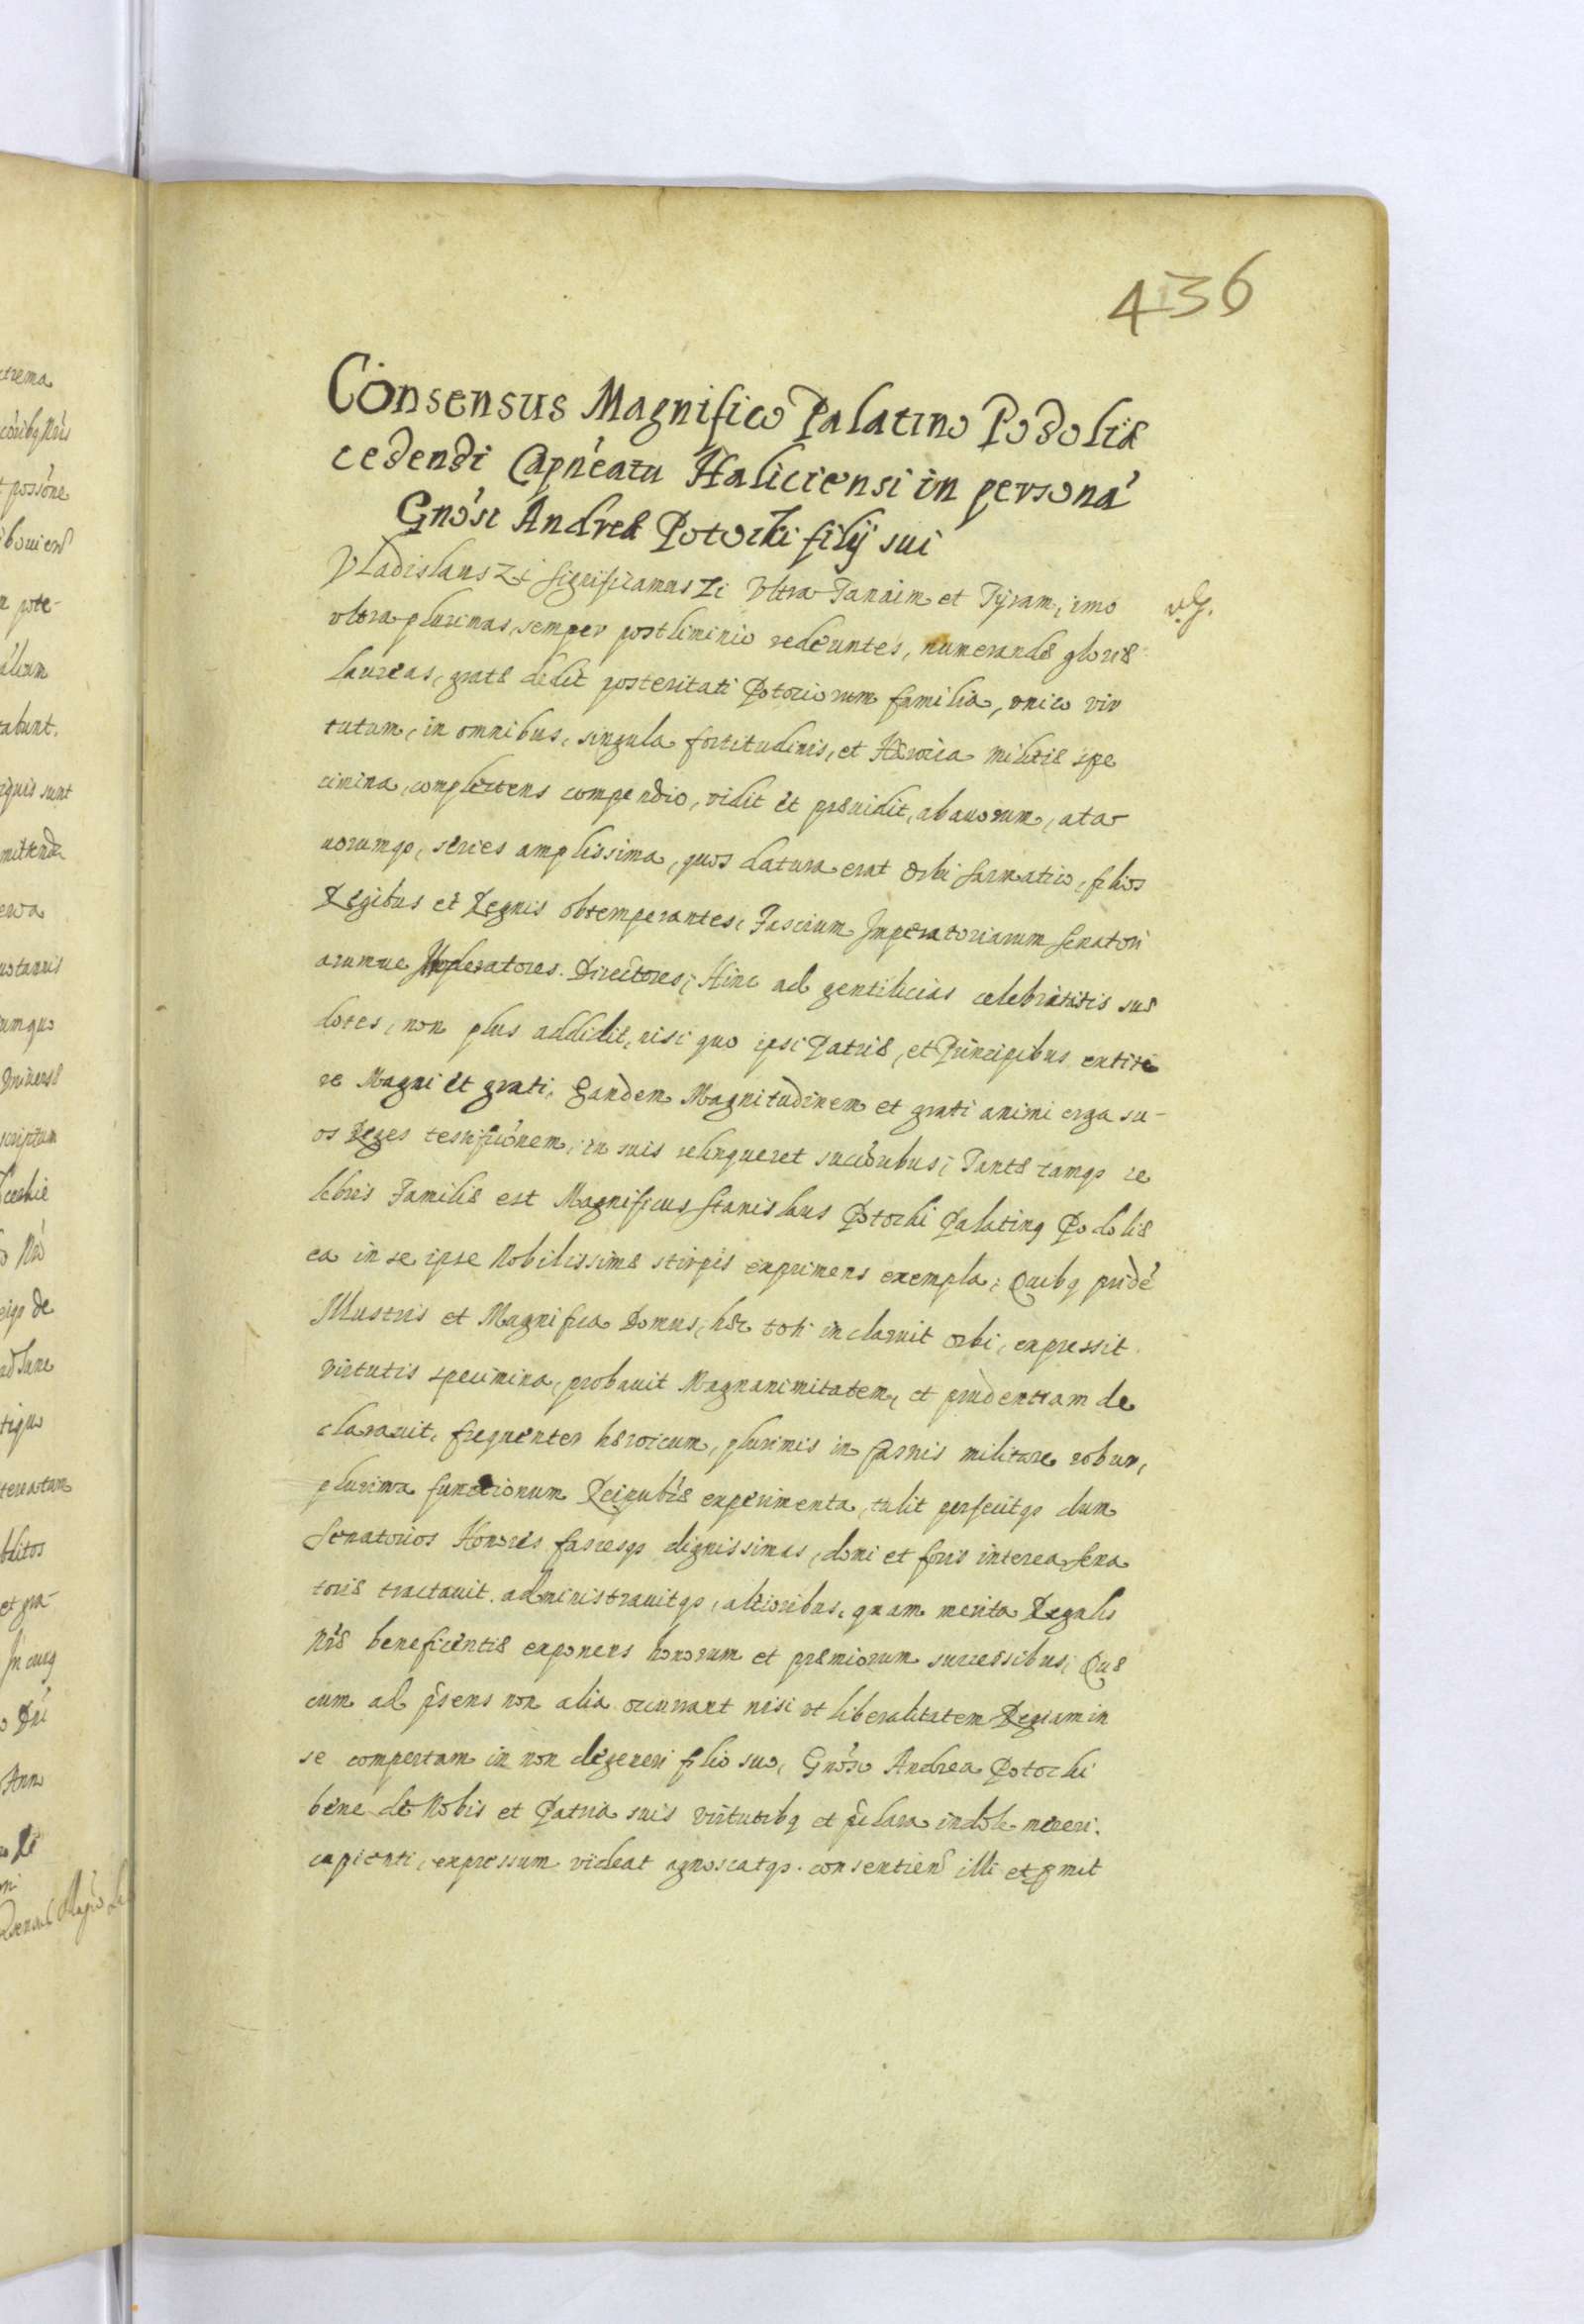 436
Consensus Magnifico Palatino Podoliæ
cedendi Capnéatu Haliciensi in personá
Gnósi Andreæ Potocki filij sui
Vladislaus Zt significamus Zt Vltra Tanaim et Tÿram, imo
vltra plurimas, semper postliminio redeuntes, numerandæ gloriæ
laureas, gratæ dedit posteritati Potociorum familia, vnico vir
tutum, in omnibus, singula fortitudinis, et Hæroica militiæ spe
cimina, complectens compendio, vidit et præuidit, abauorum, ata
uorumqȝ, series amplissima, quos datura erat Orbi Sarmatico, filios
Regibus et Regnis obtemperantes, Fascium Imperatoriarum Senatori
arumue Moderatores. Directores; Hinc ad gentilicias celebritatis suæ
dotes, non plus addidit, nisi quo ipsi Patriæ, et Principibus extite
re Magni et grati, Eandem Magnitudinem et grati animi erga su-
os Reges testificónem, in suis relinqueret succóribus; Tantæ tamqȝ ce
lebris Familiæ est Magnificus Stanislaus Potocki Palatinꝗ Podoliæ
ea in se ipse Nobilissimæ stirpis exprimens exempla, Quibꝗ pridé
Illustris et Magnifica Domus, hæc toti inclaruit orbi, expressit
virtutis specimina, probauit Magnanimitatem, et prudentiam de
clarauit, frequenter hæroicum, plurimis in Carnis militare robur,
plurima functionum Reipublæ experimenta, tulit perfecitqȝ dum
Senatorios Honores fascesqȝ dignissimas, domi et foris interea Sena
toris tractauit. administrauitqȝ, altioribus, quam merita Regalis
Nræ beneficientiæ exponens honorum et præmiorum successibus; Quæ
cum ad psens non alia occurrant nisi vt liberalitatem Regiam in
se compertam in non degeneri filio suo, Gnóso Andrea Potocki
bene de Nobis et Patria suis virtutibꝗ et pclara indole mereri
capienti, expressum videat agnoscatqȝ. consentiend illi et pmit